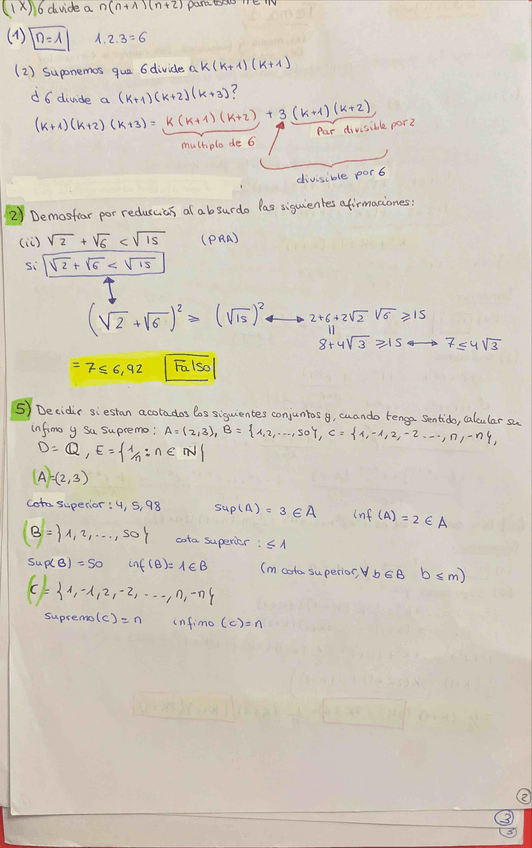 (ix) 6 divide a n(n+1)(n+2) para todo n ∈ ℕ
(1) n=1 1.2.3=6
(2) Suponemos que 6 divide a k(k+1)(k+1)
¿6 divide a (k+1)(k+2)(k+3)?
(k+1)(k+2)(k+3) = k(k+1)(k+2) + 3(k+1)(k+2)
multiplo de 6
Par divisible por 2
divisible por 6
2) Demostrar por reducción al absurdo las siguientes afirmaciones:
(ii) √2 + √6 < √15 (PRA)
Si √2 + √6 < √15
(√2 + √6)² ≥ (√15)² ⟷ 2+6+2√2 √6 ≥ 15
||
8+4√3 ≥ 15 ⟷ 7 ≤ 4√3
= 7 ≤ 6,92 Falso
5) Decidir si estan acotados los siguientes conjuntos y, cuando tenga sentido, calcular su
infimo y su supremo: A=(2,3), B={1,2,...,50}, C={1,-1,2,-2...,n,-n},
D=ℚ, E={1/n : n ∈ ℕ}
(A)=(2,3)
cota superior: 4, 5, 98 sup(A) = 3 ∈ A inf(A) = 2 ∈ A
(B)={1,2,...,50} cota superior: ≤ 1
Sup(B) = 50 inf(B)=1∈B (m cota superior, ∀ b∈B b ≤ m)
(C)={1,-1,2,-2,...,n,-n}
Supremo(c)=n infimo(c)=n
2
3
3